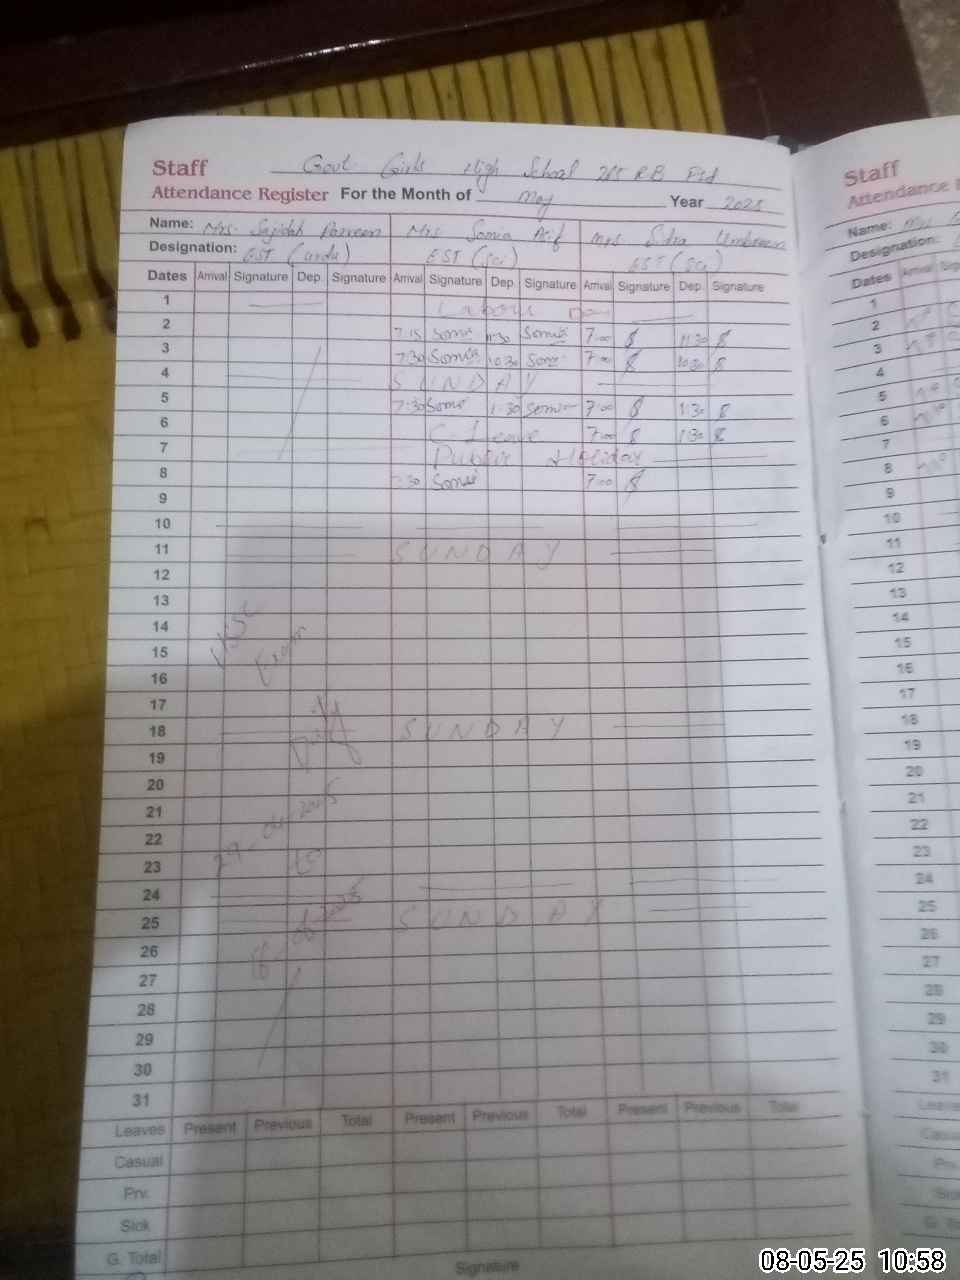 Staff Govt. Girls High School 265 RB Fsd
Attendance Register For the Month of May Year 2025
Name: Mrs. Sajidah Parveen Mrs. Somia Arif Mrs Sidra Umbreen
Designation: EST (urdu) EST (Sci) EST (Sci)
Dates Arrival Signature Dep. Signature Arrival Signature Dep. Signature Arrival Signature Dep. Signature
1 Labour Day
2 7:15 Somia 11:30 Somia 7:00 11:30
3 7:30 Somia 10:30 Somia 7:00 10:30
4 SUNDAY
5 7:30 Somia 1:30 Somia 7:00 1:30
6 C. Leave 7:00 1:30
7 Public Holiday
8 7:30 Somia 7:00
9
10
11 SUNDAY
12
13
14
15 Exam
16
17
18 SUNDAY
19 Duty
20
21
22 29-04-2025
23 to
24
25 SUNDAY
26
27
28
29
30
31
Leaves Present Previous Total Present Previous Total Present Previous Total
Casual
Prv.
Sick
G. Total
Signature
Staff
Attendance
Name:
Designation:
Dates Arrival
1
2
3
4
5
6
7
8
9
10
11
12
13
14
15
16
17
18
19
20
21
22
23
24
25
26
27
28
29
30
31
08-05-25 10:58